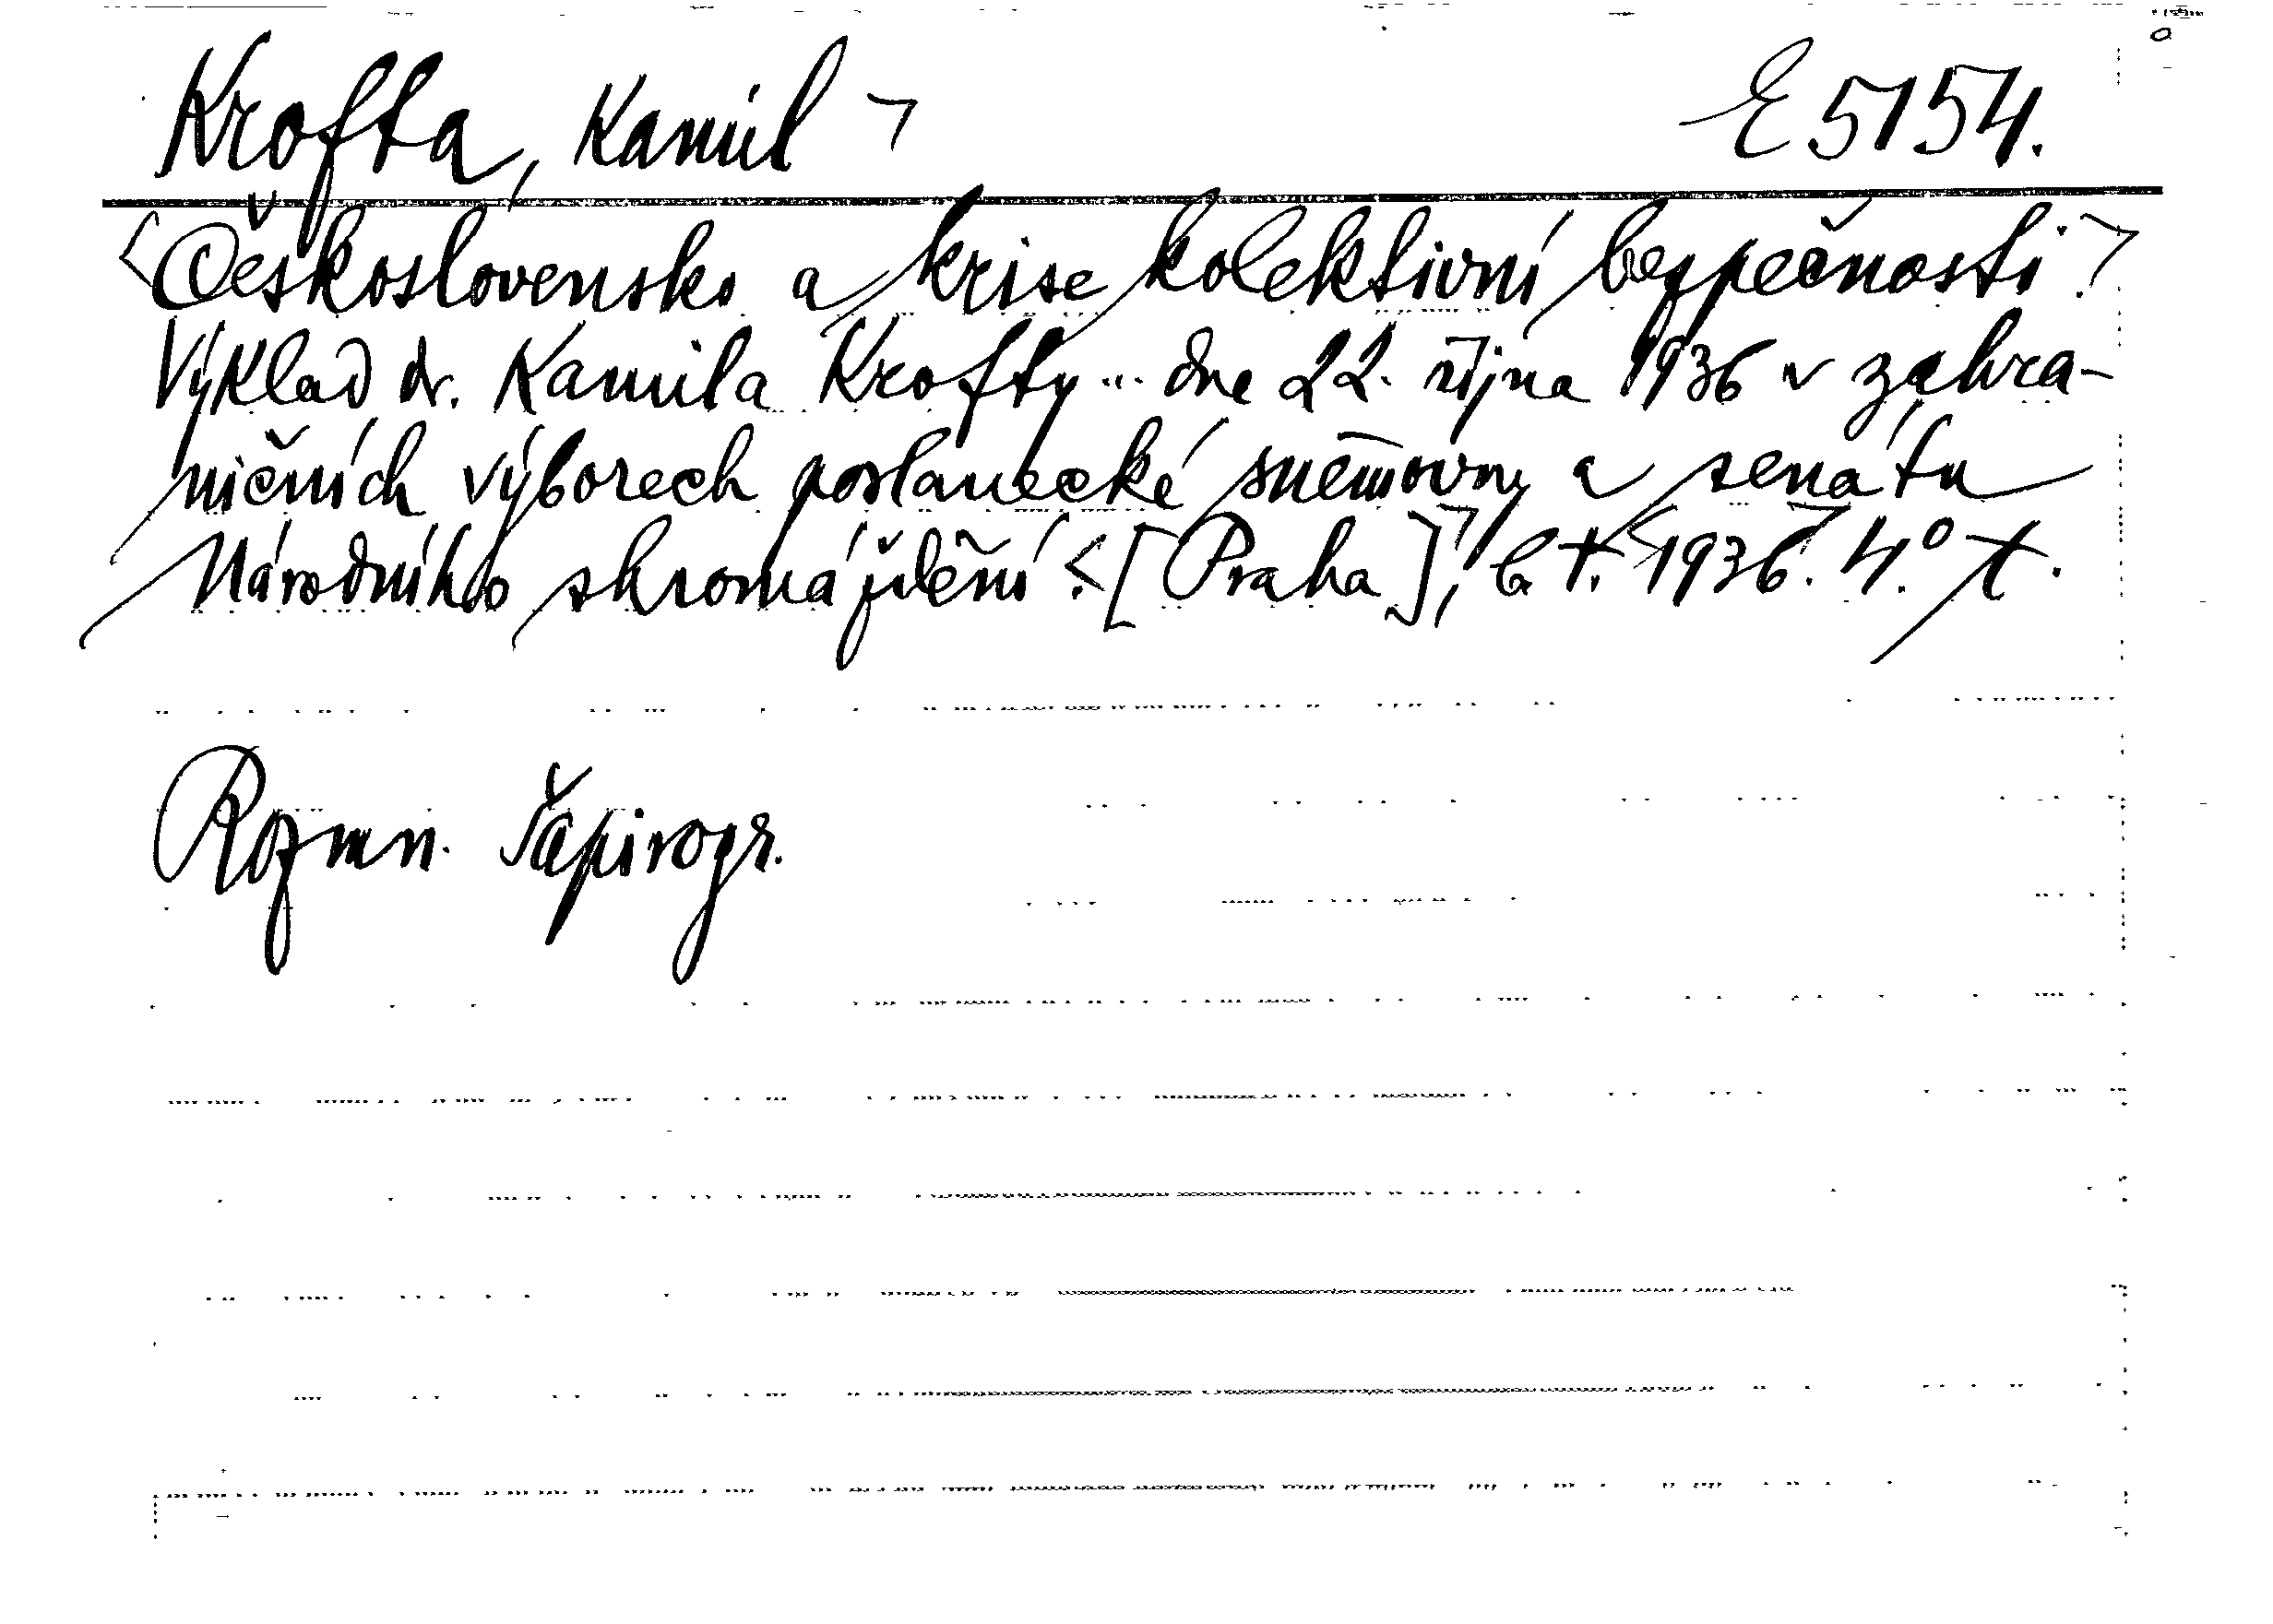 Krofta, Kamil ¬ E 5154.
<Československo a krise kolektivní bezpečnosti.>
Výklad dr. Kamila Krofty ... dne 22. října 1936 v zahra-
ničních výborech poslanecké sněmovny a senátu
Národního shromáždění. <[Praha], b. t. <1936>. 4.° X.
Rozmn. Šapirogr.